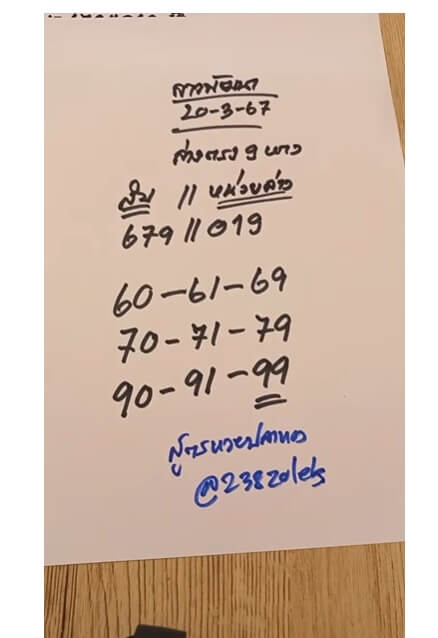 ลาวพัฒนา
20-3-67
ล่างตรง 9 ทาง
สิบ // หน่วยล่าง
679 // 019
60-61-69
70-71-79
90-91-99
สูตรหวยปลาทอง